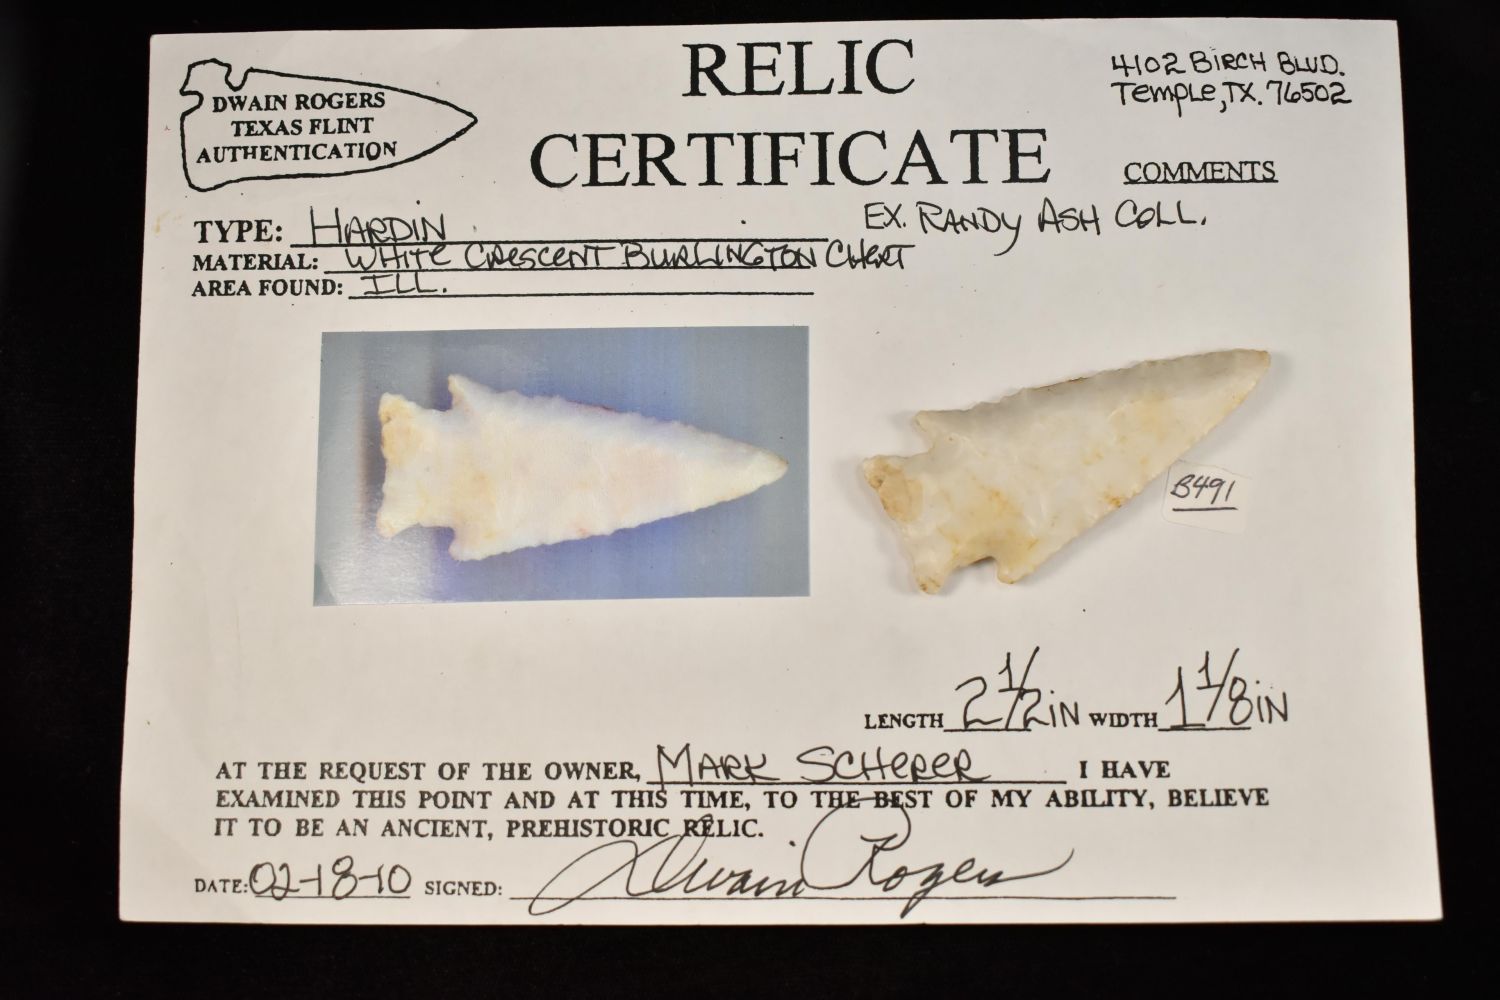 DWAIN ROGERS
TEXAS FLINT
AUTHENTICATION
RELIC
CERTIFICATE
4102 BIRCH BLVD.
TEMPLE, TX. 76502
COMMENTS
EX. RANDY ASH COLL.
TYPE: HARDIN
MATERIAL: WHITE CRESCENT BURLINGTON CHERT
AREA FOUND: ILL.
B491
LENGTH 2 1/2 IN WIDTH 1 1/8 IN
AT THE REQUEST OF THE OWNER, MARK SCHERER I HAVE
EXAMINED THIS POINT AND AT THIS TIME, TO THE BEST OF MY ABILITY, BELIEVE
IT TO BE AN ANCIENT, PREHISTORIC RELIC.
DATE: 02-18-10 SIGNED: Dwain Rogers